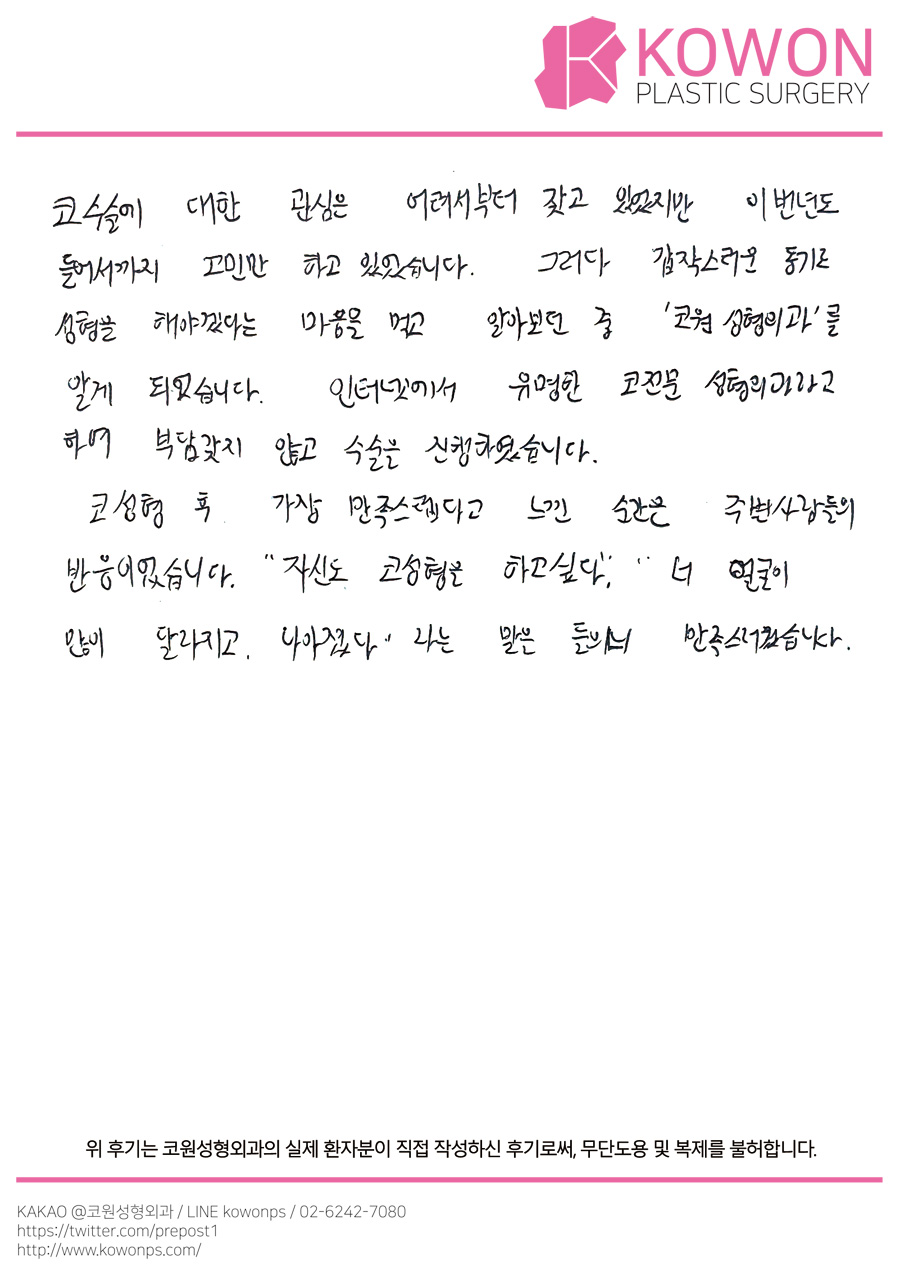 KOWON
PLASTIC SURGERY
코수술에 대한 관심은 어려서부터 갖고 있었지만 이번년도
들어서까지 고민만 하고 있었습니다. 그러다 갑작스러운 동기로
성형을 해야겠다는 마음을 먹고 알아보던 중 '코원 성형외과'를
알게 되었습니다. 인터넷에서 유명한 코전문 성형외과라고
하여 부담갖지 않고 수술을 진행하였습니다.
코성형 후 가장 만족스럽다고 느낀 순간은 주변사람들의
반응이었습니다. "자신도 코성형을 하고싶다", "너 얼굴이
많이 달라지고, 나아졌다" 라는 말은 듣으니 만족스러웠습니다.
위 후기는 코원성형외과의 실제 환자분이 직접 작성하신 후기로써, 무단도용 및 복제를 불허합니다.
KAKAO @코원성형외과 / LINE kowonps / 02-6242-7080
https://twitter.com/prepost1
http://www.kowonps.com/